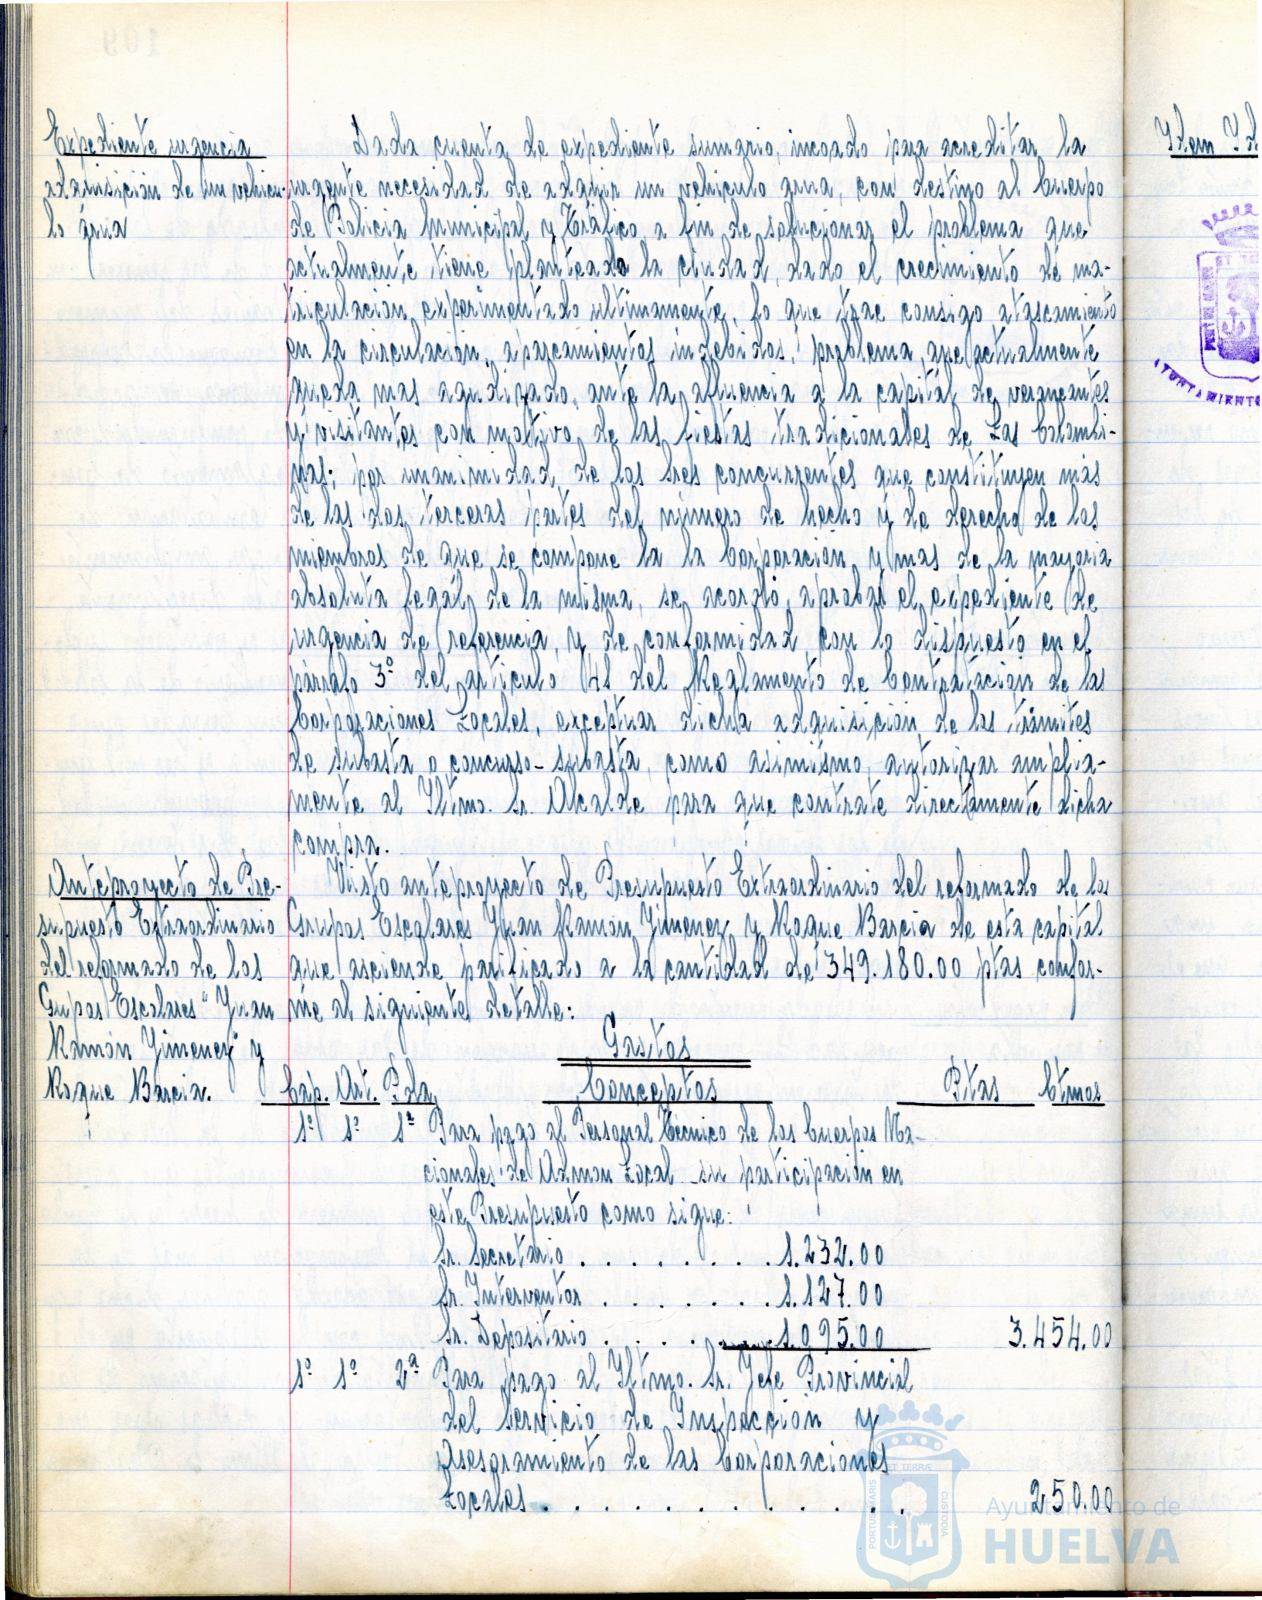 Expediente urgencia
adquisición de un vehicu-
lo grua
Dada cuenta de expediente sumario, incoado para acreditar la
urgente necesidad de adquir un vehiculo grua, con destino al Cuerpo
de Policia Municipal y Tráfico, a fin de solucionar el problema que
actualmente tiene planteado la ciudad, dado el crecimiento de ma-
triculación, experimentado ultimamente, lo que trae consigo atascamiento
en la circulación, aparcamientos indebidos, problema, que actualmente
queda mas agudizado, ante la afluencia a la capital de veraneantes
y visitantes con motivo de las fiestas tradicionales de Las Colombi-
nas; por unanimidad, de los Sres concurrentes que constituyen más
de las dos terceras partes del número de hecho y de derecho de los
miembros de que se compone la la Corporación y mas de la mayoria
absoluta legal, de la misma, se acordó, aprobar el expediente de
urgencia de referencia, y de conformidad con lo dispuesto en el
párrafo 3º del articulo 41 del Reglamento de Contratación de las
Corporaciones Locales, exceptuar dicha adquisición, de los trámites
de subasta o concurso-subasta, como asimismo, autorizar amplia-
mente al Iltmo. Sr. Alcalde para que contrate directamente dicha
compra.
Anteproyecto de Pre-
supuesto Extraordinario
del reformado de los
Grupos Escolares "Juan
Ramón Jimenez" y
Roque Barcia.
Visto anteproyecto de Presupuesto Extraordinario del reformado de los
Grupos Escolares Juan Ramón Jimenez y Roque Barcia de esta capital
que asciende parificado a la cantidad de 349.180.00 ptas confor-
me al siguiente detalle:
Gastos
Cap. Art. Pda, Conceptos Ptas Ctmos
1º 1º 1ª Para pago al Personal Técnico de los Cuerpos Na-
cionales de Admon Local su participación en
este Presupuesto como sigue:
Sr. Secretario . . . . . . . . 1.232.00
Sr. Interventor . . . . . . . 1.127.00
Sr. Depositario . . . . . 1.095.00 3.454.00
1º 1º 2ª Para pago al Iltmo. Sr. Jefe Provincial
del Servicio de Inspección y
Asesoramiento de las Corporaciones
Locales . . . . . . . . . . . 250.00
Idem Id
AYUNTAMIENTO
PORTUS MARIS ET TERRÆ CUSTODIA
Ayuntamiento de
HUELVA